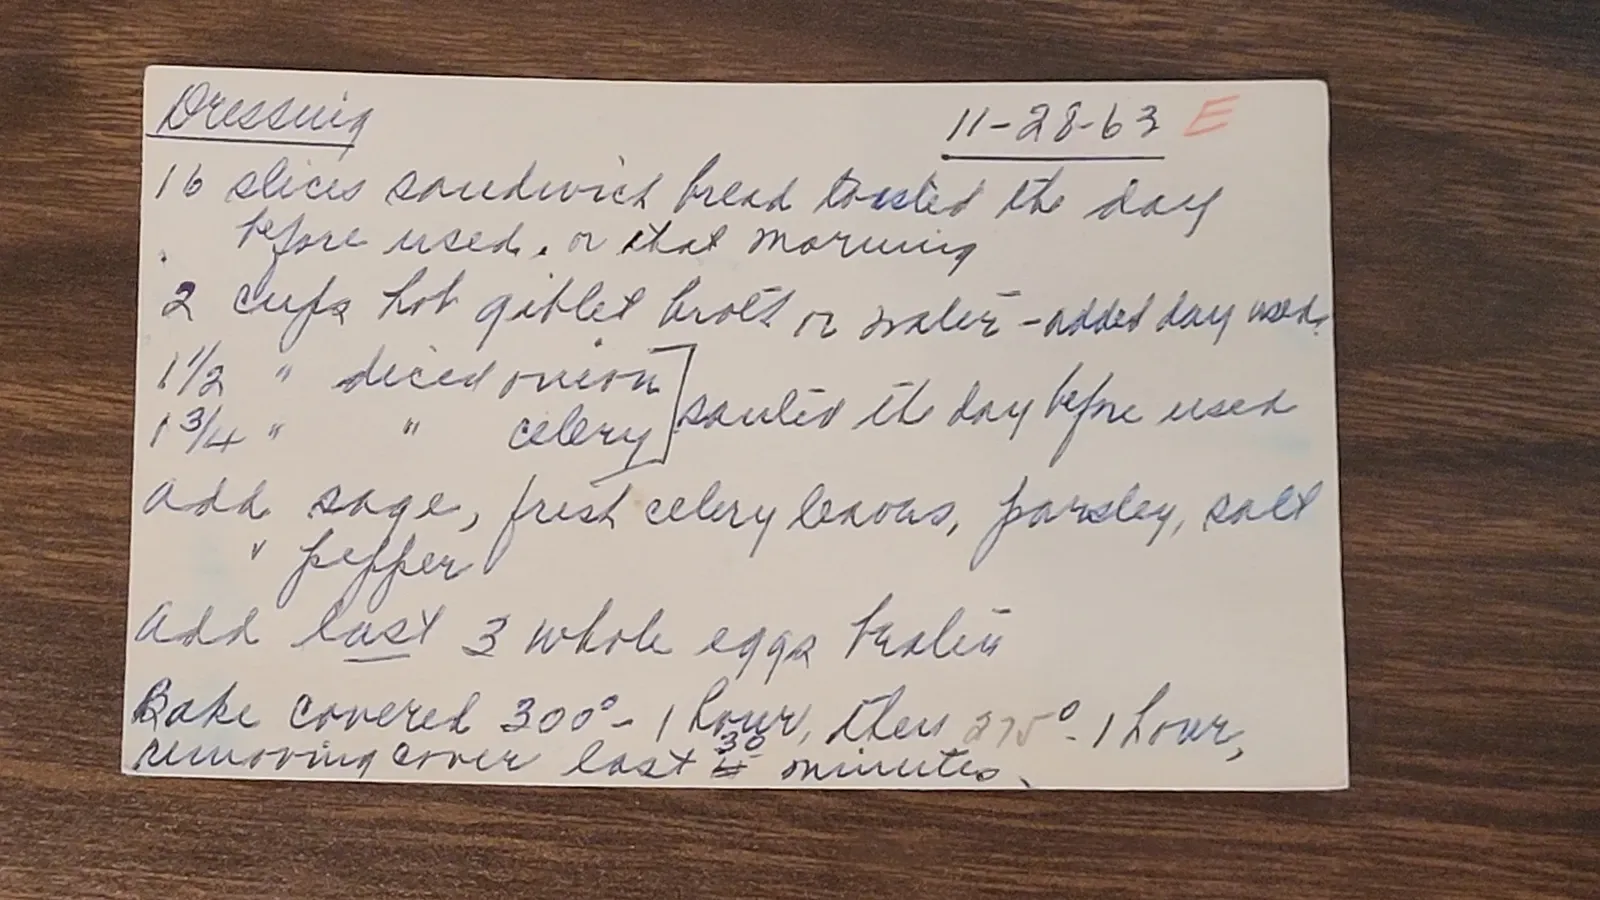 Dressing 11-28-63 E
16 slices sandwich bread toasted the day
before used, or that morning
2 cups hot giblet broth or water - added day used.
1 1/2 " diced onion
1 3/4 " " celery ] sautéd the day before used
add sage, fresh celery leaves, parsley, salt
" pepper
add last 3 whole eggs beaten
Bake covered 300° - 1 hour, then 275° - 1 hour,
removing cover last 30 minutes.